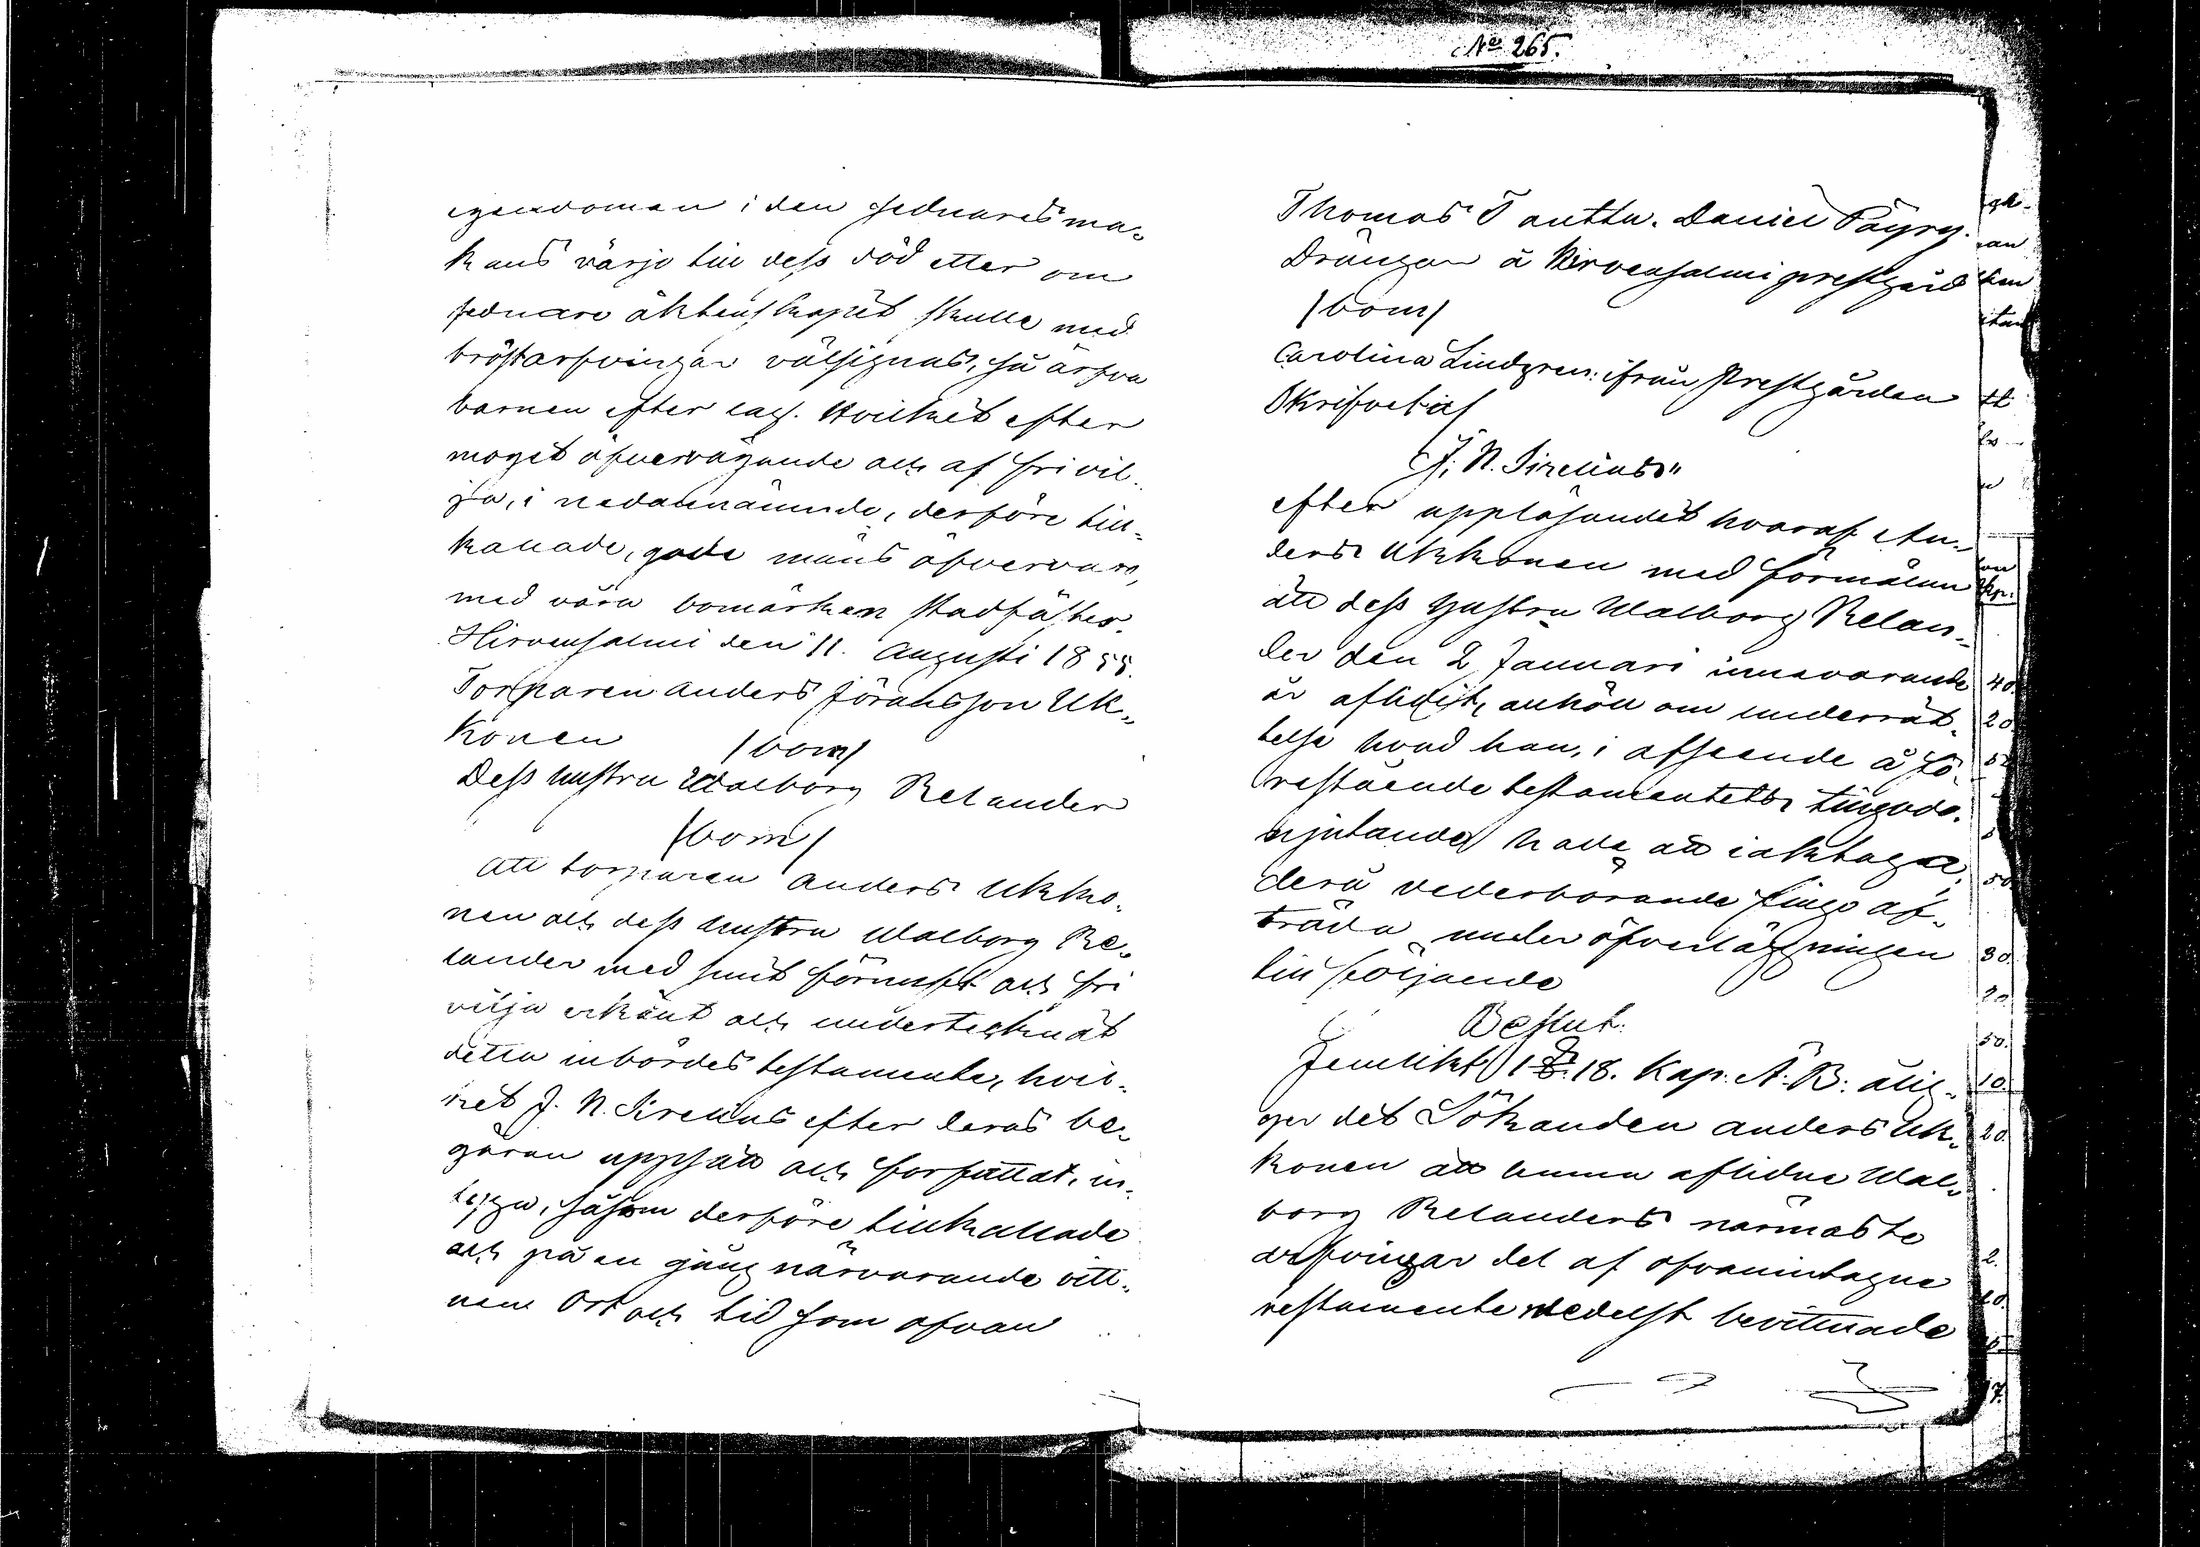 No 265.
egendomen i den sednares ma-
kans värjo till dess död eller om
sednare äktenskapet skulle med
bröstarfvingar välsignas, så ärfva
barnen efter lag. Hvilket efter
moget öfvervägande och af fri vil-
ja, i nedannämnde, derföre till-
kallade, gode mäns öfvervaro,
med våra bomärken stadfästes.
Hirvensalmi den 11. Augusti 1855.
Torparen Anders Jöransson Uk-
konen /bom/
Dess hustru Walborg Relander
/bom/
Att torparen Anders Ukko-
nen och dess hustru Walborg Re-
lander med sundt förnuft och fri
vilja erkänt och undertecknat
detta inbördes testamente, hvil-
ket J. N. Sirelius efter deras be-
gäran uppsatt och författat, in-
tyga, såsom derföre tillkallade
och på en gång närvarande vitt-
nen Ort och tid som ofvan
Thomas Tanttu. Daniel Päyry.
Drängar å Hirvensalmi prestgård
/bom/
Carolina Lindgren: ifrån Prestgården
Skrifvet af
J. N. Sirelius"
efter uppläsandet hvaraf An-
ders Ukkonen med förmälan
att dess hustru Walborg Relan-
der den 2 Januari innevarande
år aflidit, anhöll om underrät-
telse hvad han, i afseende å fö-
restående testamentets tillgodo-
njutande hade att iakttaga;
derå vederbörande fingo af-
träda under öfverläggningen
till följande
Beslut:
Jemlikt 1 § 18. Kap. Ä. B: ålig-
ger det Sökanden Anders Uk-
konen att emna aflidne Wal-
borg Relanders närmaste
arfvingar del af ofvanintagne
testamente medelst bevittnade